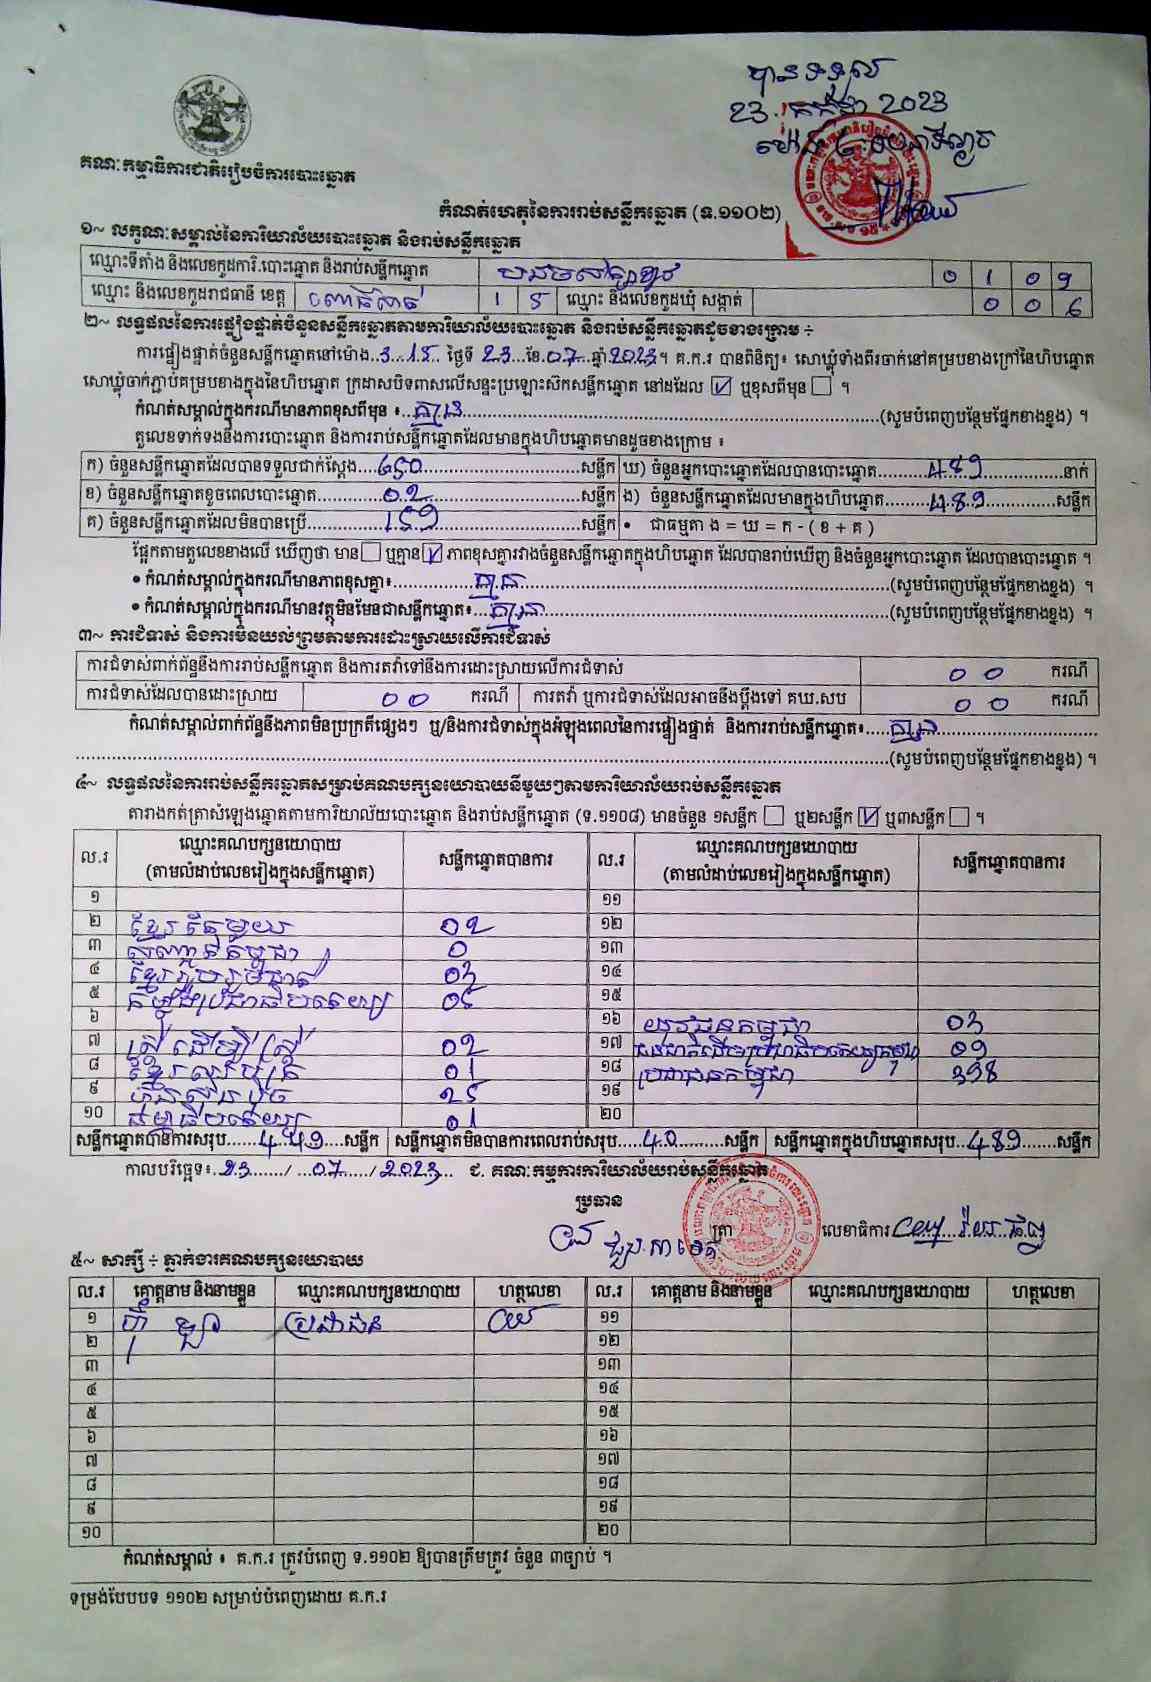 បានទទួល
23 កក្កដា 2023
គណៈកម្មាធិការជាតិរៀបចំការបោះឆ្នោត
កំណត់ហេតុនៃការរាប់សន្លឹកឆ្នោត (ទ.១១០២)
១~ លក្ខណៈសម្គាល់នៃការិយាល័យបោះឆ្នោត និងរាប់សន្លឹកឆ្នោត
ឈ្មោះទីតាំង និងលេខកូដការិ.បោះឆ្នោត និងរាប់សន្លឹកឆ្នោត 0 1 0 9
ឈ្មោះ និងលេខកូដរាជធានី ខេត្ត ពោធិ៍សាត់ 1 5 ឈ្មោះ និងលេខកូដឃុំ សង្កាត់ 0 0 6
២~ លទ្ធផលនៃការផ្ទៀងផ្ទាត់ចំនួនសន្លឹកឆ្នោតតាមការិយាល័យបោះឆ្នោត និងរាប់សន្លឹកឆ្នោតដូចខាងក្រោម ÷
ការផ្ទៀងផ្ទាត់ចំនួនសន្លឹកឆ្នោតនៅម៉ោង..3..15.. ថ្ងៃទី 23..ខែ.07..ឆ្នាំ 2023។ គ.ក.រ បានពិនិត្យ៖ សោឃ្លុំទាំងពីរចាក់នៅគម្របខាងក្រៅនៃហិបឆ្នោត
សោឃ្លុំចាក់ភ្ជាប់គម្របខាងក្នុងនៃហិបឆ្នោត ក្រដាសបិទពាសលើសន្ទះប្រឡោះស៊កសន្លឹកឆ្នោត នៅដដែល ☑ ឬខុសពីមុន ☐ ។
កំណត់សម្គាល់ក្នុងករណីមានភាពខុសពីមុន ៖...គ្មាន...(សូមបំពេញបន្ថែមផ្នែកខាងខ្នង) ។
តួលេខទាក់ទងនឹងការបោះឆ្នោត និងការរាប់សន្លឹកឆ្នោតដែលមានក្នុងហិបឆ្នោតមានដូចខាងក្រោម ៖
ក) ចំនួនសន្លឹកឆ្នោតដែលបានទទួលជាក់ស្តែង....650....សន្លឹក ឃ) ចំនួនអ្នកបោះឆ្នោតដែលបានបោះឆ្នោត....489....នាក់
ខ) ចំនួនសន្លឹកឆ្នោតខូចពេលបោះឆ្នោត....02....សន្លឹក ង) ចំនួនសន្លឹកឆ្នោតដែលមានក្នុងហិបឆ្នោត....489....សន្លឹក
គ) ចំនួនសន្លឹកឆ្នោតដែលមិនបានប្រើ....159....សន្លឹក • ជាធម្មតា ង = ឃ = ក - ( ខ + គ )
ផ្អែកតាមតួលេខខាងលើ ឃើញថា មាន ☐ ឬគ្មាន ☑ ភាពខុសគ្នារវាងចំនួនសន្លឹកឆ្នោតក្នុងហិបឆ្នោត ដែលបានរាប់ឃើញ និងចំនួនអ្នកបោះឆ្នោត ដែលបានបោះឆ្នោត ។
• កំណត់សម្គាល់ក្នុងករណីមានភាពខុសគ្នា៖....គ្មាន....(សូមបំពេញបន្ថែមផ្នែកខាងខ្នង) ។
• កំណត់សម្គាល់ក្នុងករណីមានវត្ថុមិនមែនជាសន្លឹកឆ្នោត៖...គ្មាន....(សូមបំពេញបន្ថែមផ្នែកខាងខ្នង) ។
៣~ ការជំទាស់ និងការមិនយល់ព្រមតាមការដោះស្រាយលើការជំទាស់
ការជំទាស់ពាក់ព័ន្ធនឹងការរាប់សន្លឹកឆ្នោត និងការតវ៉ាទៅនឹងការដោះស្រាយលើការជំទាស់ 00 ករណី
ការជំទាស់ដែលបានដោះស្រាយ 00 ករណី ការតវ៉ា ឬការជំទាស់ដែលអាចនឹងប្តឹងទៅ គឃ.សប 00 ករណី
កំណត់សម្គាល់ពាក់ព័ន្ធនឹងភាពមិនប្រក្រតីផ្សេងៗ ឬ/និងការជំទាស់ក្នុងអំឡុងពេលនៃការផ្ទៀងផ្ទាត់ និងការរាប់សន្លឹកឆ្នោត៖.....គ្មាន....
(សូមបំពេញបន្ថែមផ្នែកខាងខ្នង) ។
៤~ លទ្ធផលនៃការរាប់សន្លឹកឆ្នោតសម្រាប់គណបក្សនយោបាយនីមួយៗតាមការិយាល័យរាប់សន្លឹកឆ្នោត
តារាងកត់ត្រាសំឡេងឆ្នោតតាមការិយាល័យបោះឆ្នោត និងរាប់សន្លឹកឆ្នោត (ទ.១១០៨) មានចំនួន ១សន្លឹក ☐ ឬ២សន្លឹក ☑ ឬ៣សន្លឹក ☐ ។
ល.រ ឈ្មោះគណបក្សនយោបាយ (តាមលំដាប់លេខរៀងក្នុងសន្លឹកឆ្នោត) សន្លឹកឆ្នោតបានការ ល.រ ឈ្មោះគណបក្សនយោបាយ (តាមលំដាប់លេខរៀងក្នុងសន្លឹកឆ្នោត) សន្លឹកឆ្នោតបានការ
១ ១១
២ ខ្មែរតែមួយ 02 ១២
៣ សញ្ជាតិកម្ពុជា 0 ១៣
៤ ខ្មែររួបរួមជាតិ 03 ១៤
៥ កម្លាំងប្រជាធិបតេយ្យ 05 ១៥
៦ ១៦ យុវជនកម្ពុជា 03
៧ ស្រី ដើម្បី ស្រី 02 ១៧ ជនជាតិដើមប្រជាធិបតេយ្យកម្ពុជា 09
៨ ខ្មែរឈប់ក្រ 01 ១៨ ប្រជាជនកម្ពុជា 398
៩ ហ្វ៊ុនស៊ិនប៉ិច 25 ១៩
១០ ធម្មាធិបតេយ្យ 01 ២០
សន្លឹកឆ្នោតបានការសរុប......449....សន្លឹក សន្លឹកឆ្នោតមិនបានការពេលរាប់សរុប.....40........សន្លឹក សន្លឹកឆ្នោតក្នុងហិបឆ្នោតសរុប..489......សន្លឹក
កាលបរិច្ឆេទ៖..23....../...07...../..2023... ជ. គណៈកម្មការការិយាល័យរាប់សន្លឹកឆ្នោត
ប្រធាន
ត្រា លេខាធិការ
៥~ សាក្សី ÷ ភ្នាក់ងារគណបក្សនយោបាយ
ល.រ គោត្តនាម និងនាមខ្លួន ឈ្មោះគណបក្សនយោបាយ ហត្ថលេខា ល.រ គោត្តនាម និងនាមខ្លួន ឈ្មោះគណបក្សនយោបាយ ហត្ថលេខា
១ ប្រជាជន ១១
២ ១២
៣ ១៣
៤ ១៤
៥ ១៥
៦ ១៦
៧ ១៧
៨ ១៨
៩ ១៩
១០ ២០
កំណត់សម្គាល់ ៖ គ.ក.រ ត្រូវបំពេញ ទ.១១០២ ឱ្យបានត្រឹមត្រូវ ចំនួន ៣ច្បាប់ ។
ទម្រង់បែបបទ ១១០២ សម្រាប់បំពេញដោយ គ.ក.រ